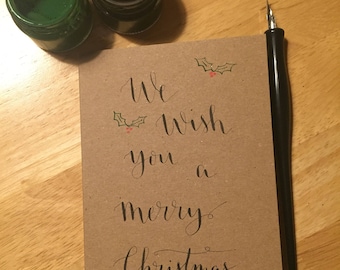 We
Wish
You a
Merry
Christmas